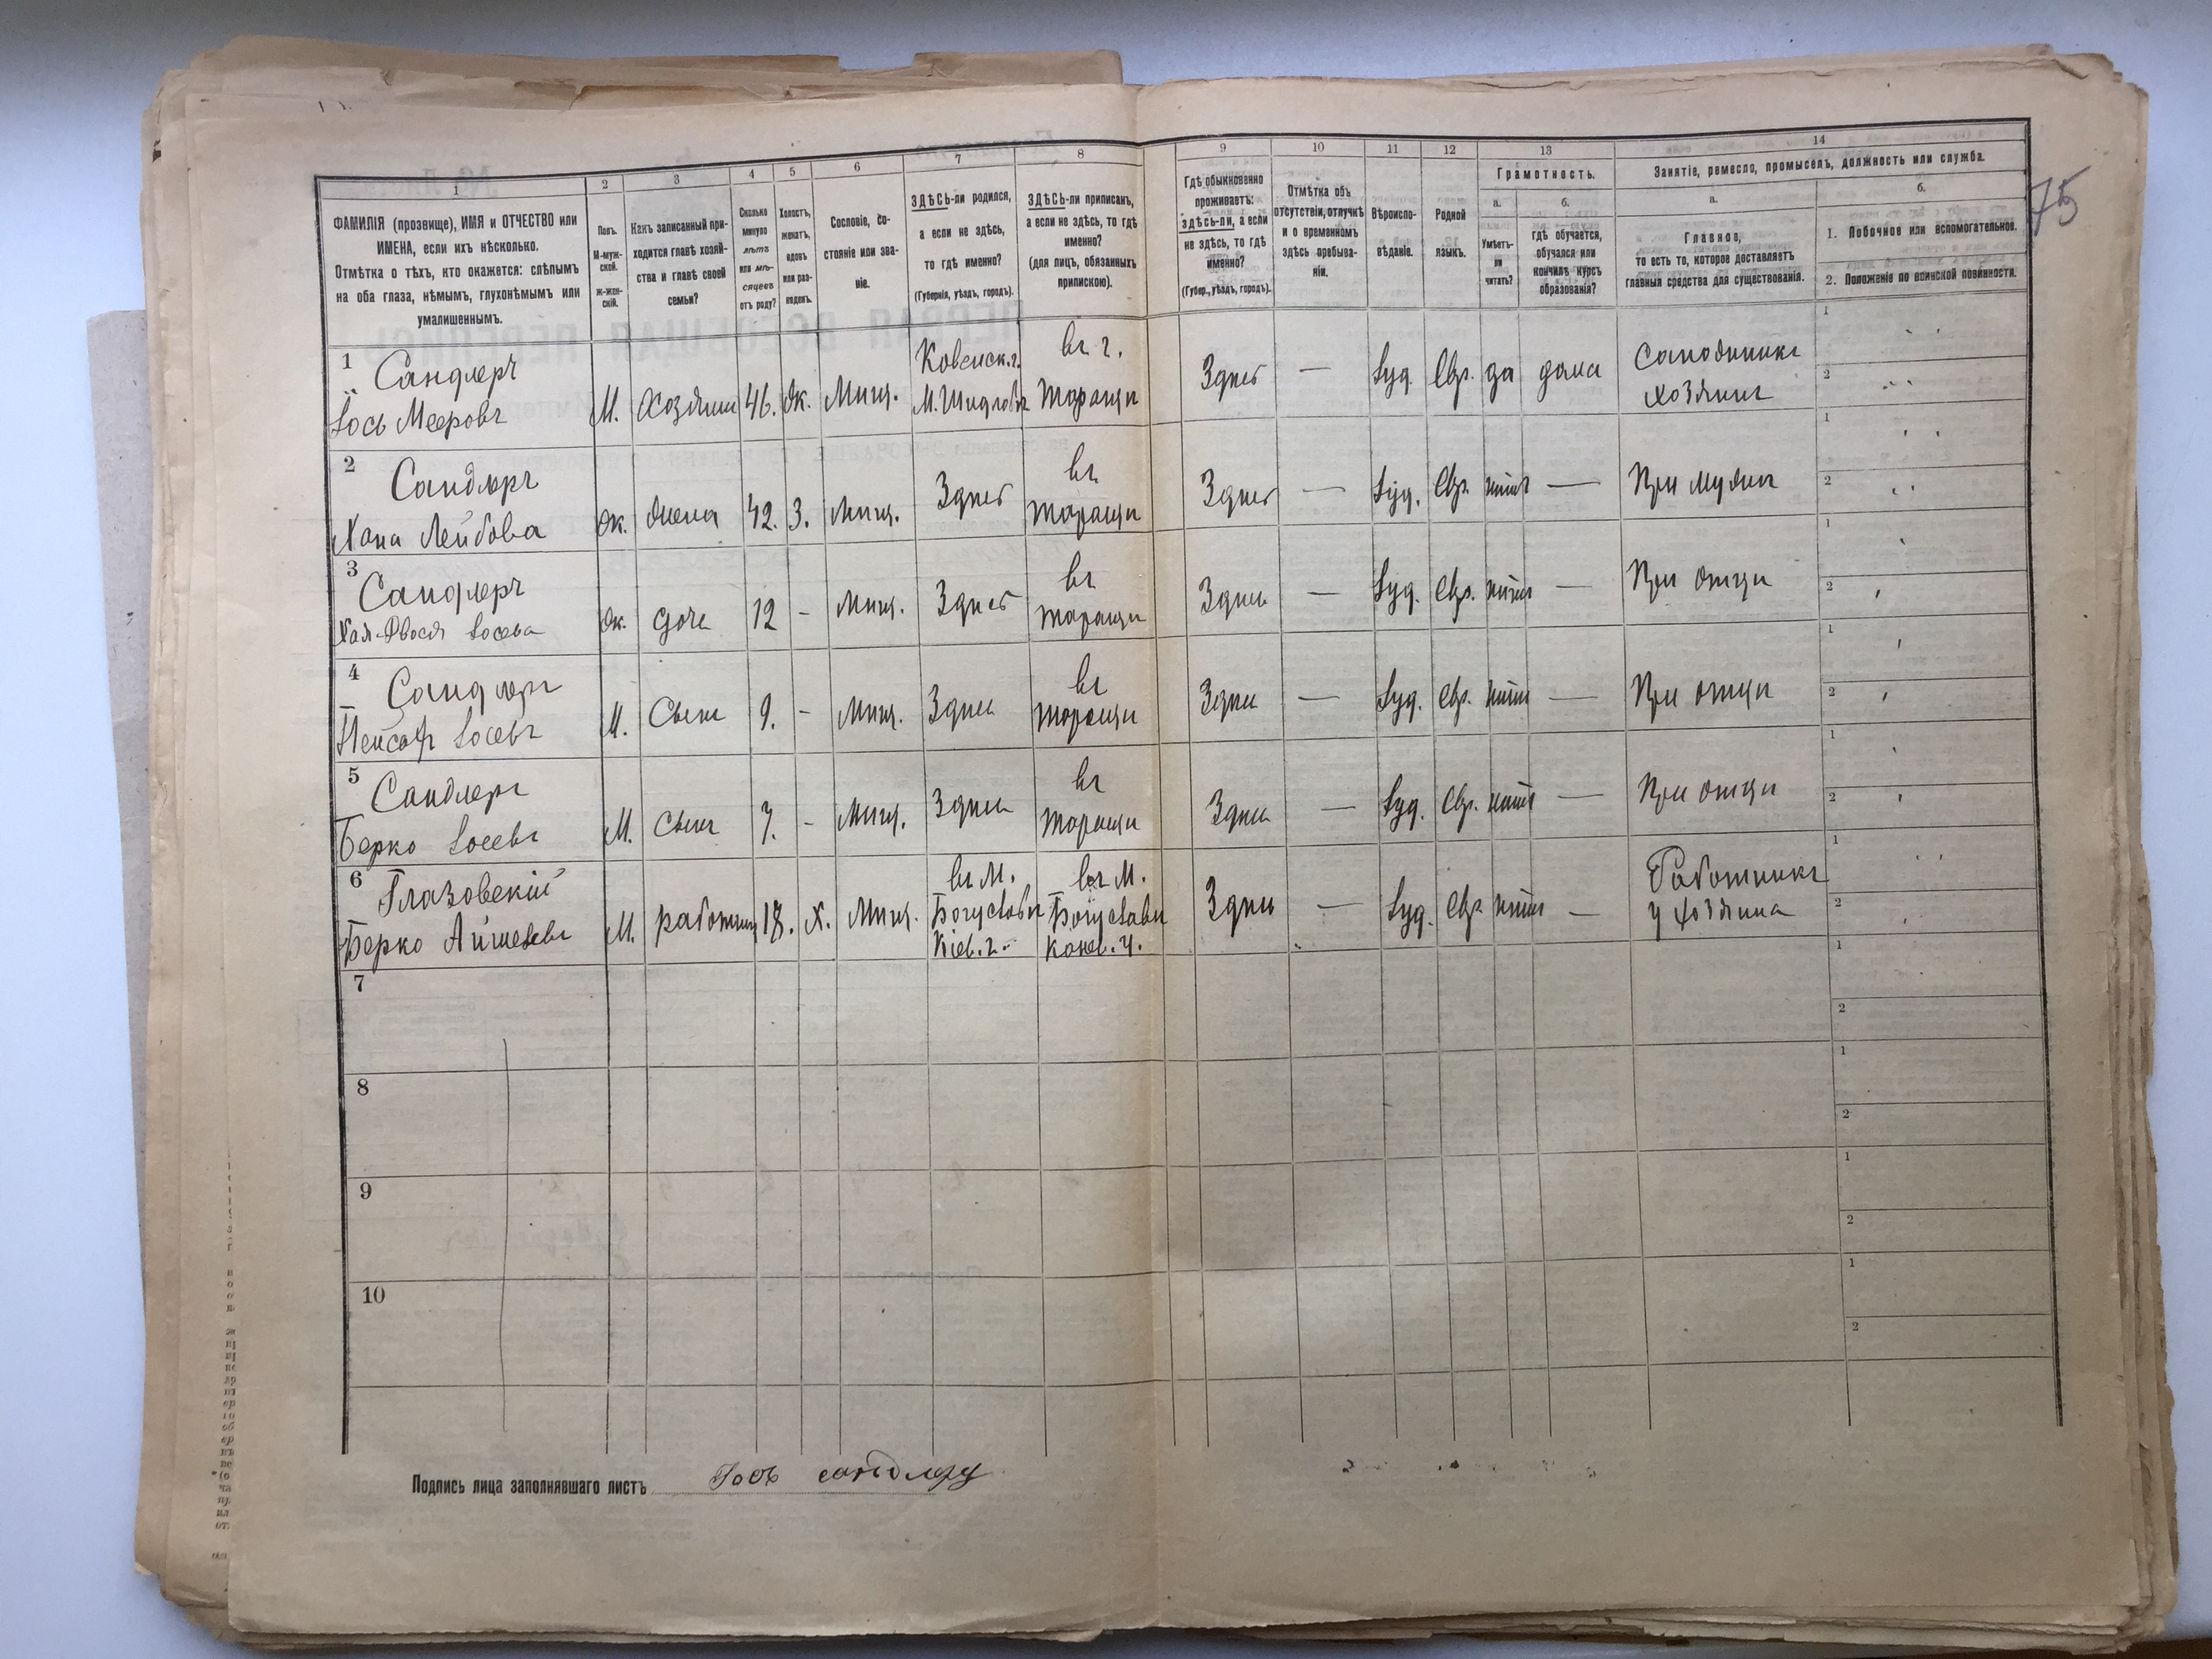 75
1 2 3 4 5 6 7 8 9 10 11 12 13 14
ФАМИЛІЯ (прозвище), ИМЯ и ОТЧЕСТВО или
ИМЕНА, если ихъ нѣсколько.
Отмѣтка о тѣхъ, кто окажется: слѣпымъ
на оба глаза, нѣмымъ, глухонѣмымъ или
умалишеннымъ.
Полъ.
М-муж-
ской.
ж-жен-
скій.
Какъ записанный при-
ходится главѣ хозяй-
ства и главѣ своей
семьи?
Сколько
минуло
лѣтъ
или мѣ-
сяцевъ
отъ роду?
Холостъ,
женатъ,
вдовъ
или раз-
веденъ.
Сословіе, со-
стояніе или зва-
ніе.
ЗДѢСЬ-ли родился,
а если не здѣсь,
то гдѣ именно?
(Губернія, уѣздъ, городъ).
ЗДѢСЬ-ли приписанъ,
а если не здѣсь, то гдѣ
именно?
(для лицъ, обязанныхъ
припискою).
Гдѣ обыкновенно
проживаетъ:
ЗДѢСЬ-ли, а если
не здѣсь, то гдѣ
именно?
(Губер., уѣздъ, городъ).
Отмѣтка объ
отсутствіи, отлучкѣ
и о временномъ
здѣсь пребыва-
ніи.
Вѣроиспо-
вѣданіе.
Родной
языкъ.
Грамотность.
а.
Умѣетъ-
ли
читать?
б.
гдѣ обучается,
обучался или
кончилъ курсъ
образованія?
Занятіе, ремесло, промыселъ, должность или служба.
а.
Главное,
то есть то, которое доставляетъ
главныя средства для существованія.
б.
1. Побочное или вспомогательное.
2. Положеніе по воинской повинности.
1 Сандлеръ вг г. 1
Іось Мееровъ М. Хозяинъ 46. Ж. Мѣщ. Ковенск. г. Таращи Здѣсь — Іуд. Евр. да дома Сапожникъ хозяинъ 2
2 Сандлеръ въ 1
Хана Лейбова Ж. жена 42. З. Мѣщ. Здѣсь Таращи Здѣсь — Іуд. Евр. нѣтъ — При мужѣ 2
3 Сандлеръ въ 1
Хая-Двося Іосева Ж. дочь 12 - Мѣщ. Здѣсь Таращи Здѣсь — Іуд. Евр. нѣтъ — При отцѣ 2
4 Сандлеръ въ 1
Пейсах Іосевъ М. Сынъ 9. - Мѣщ. Здѣсь Таращи Здѣсь — Іуд. Евр. нѣтъ — При отцѣ 2
5 Сандлеръ въ 1
Берко Іосевъ М. Сынъ 7. - Мѣщ. Здѣсь Таращи Здѣсь — Іуд. Евр. нѣтъ — При отцѣ 2
6 Глазовскій въ М. въ М. Работникъ 1
Берко М. работникъ 18. Х. Мѣщ. Богуславѣ Богуславѣ Здѣсь — Іуд. Евр. нѣтъ — у хозяина 2
Кіев. г. Канев. у.
7 1
2
8 1
2
9 1
2
10 1
2
Подпись лица заполнявшаго листъ Іось сандлеръ